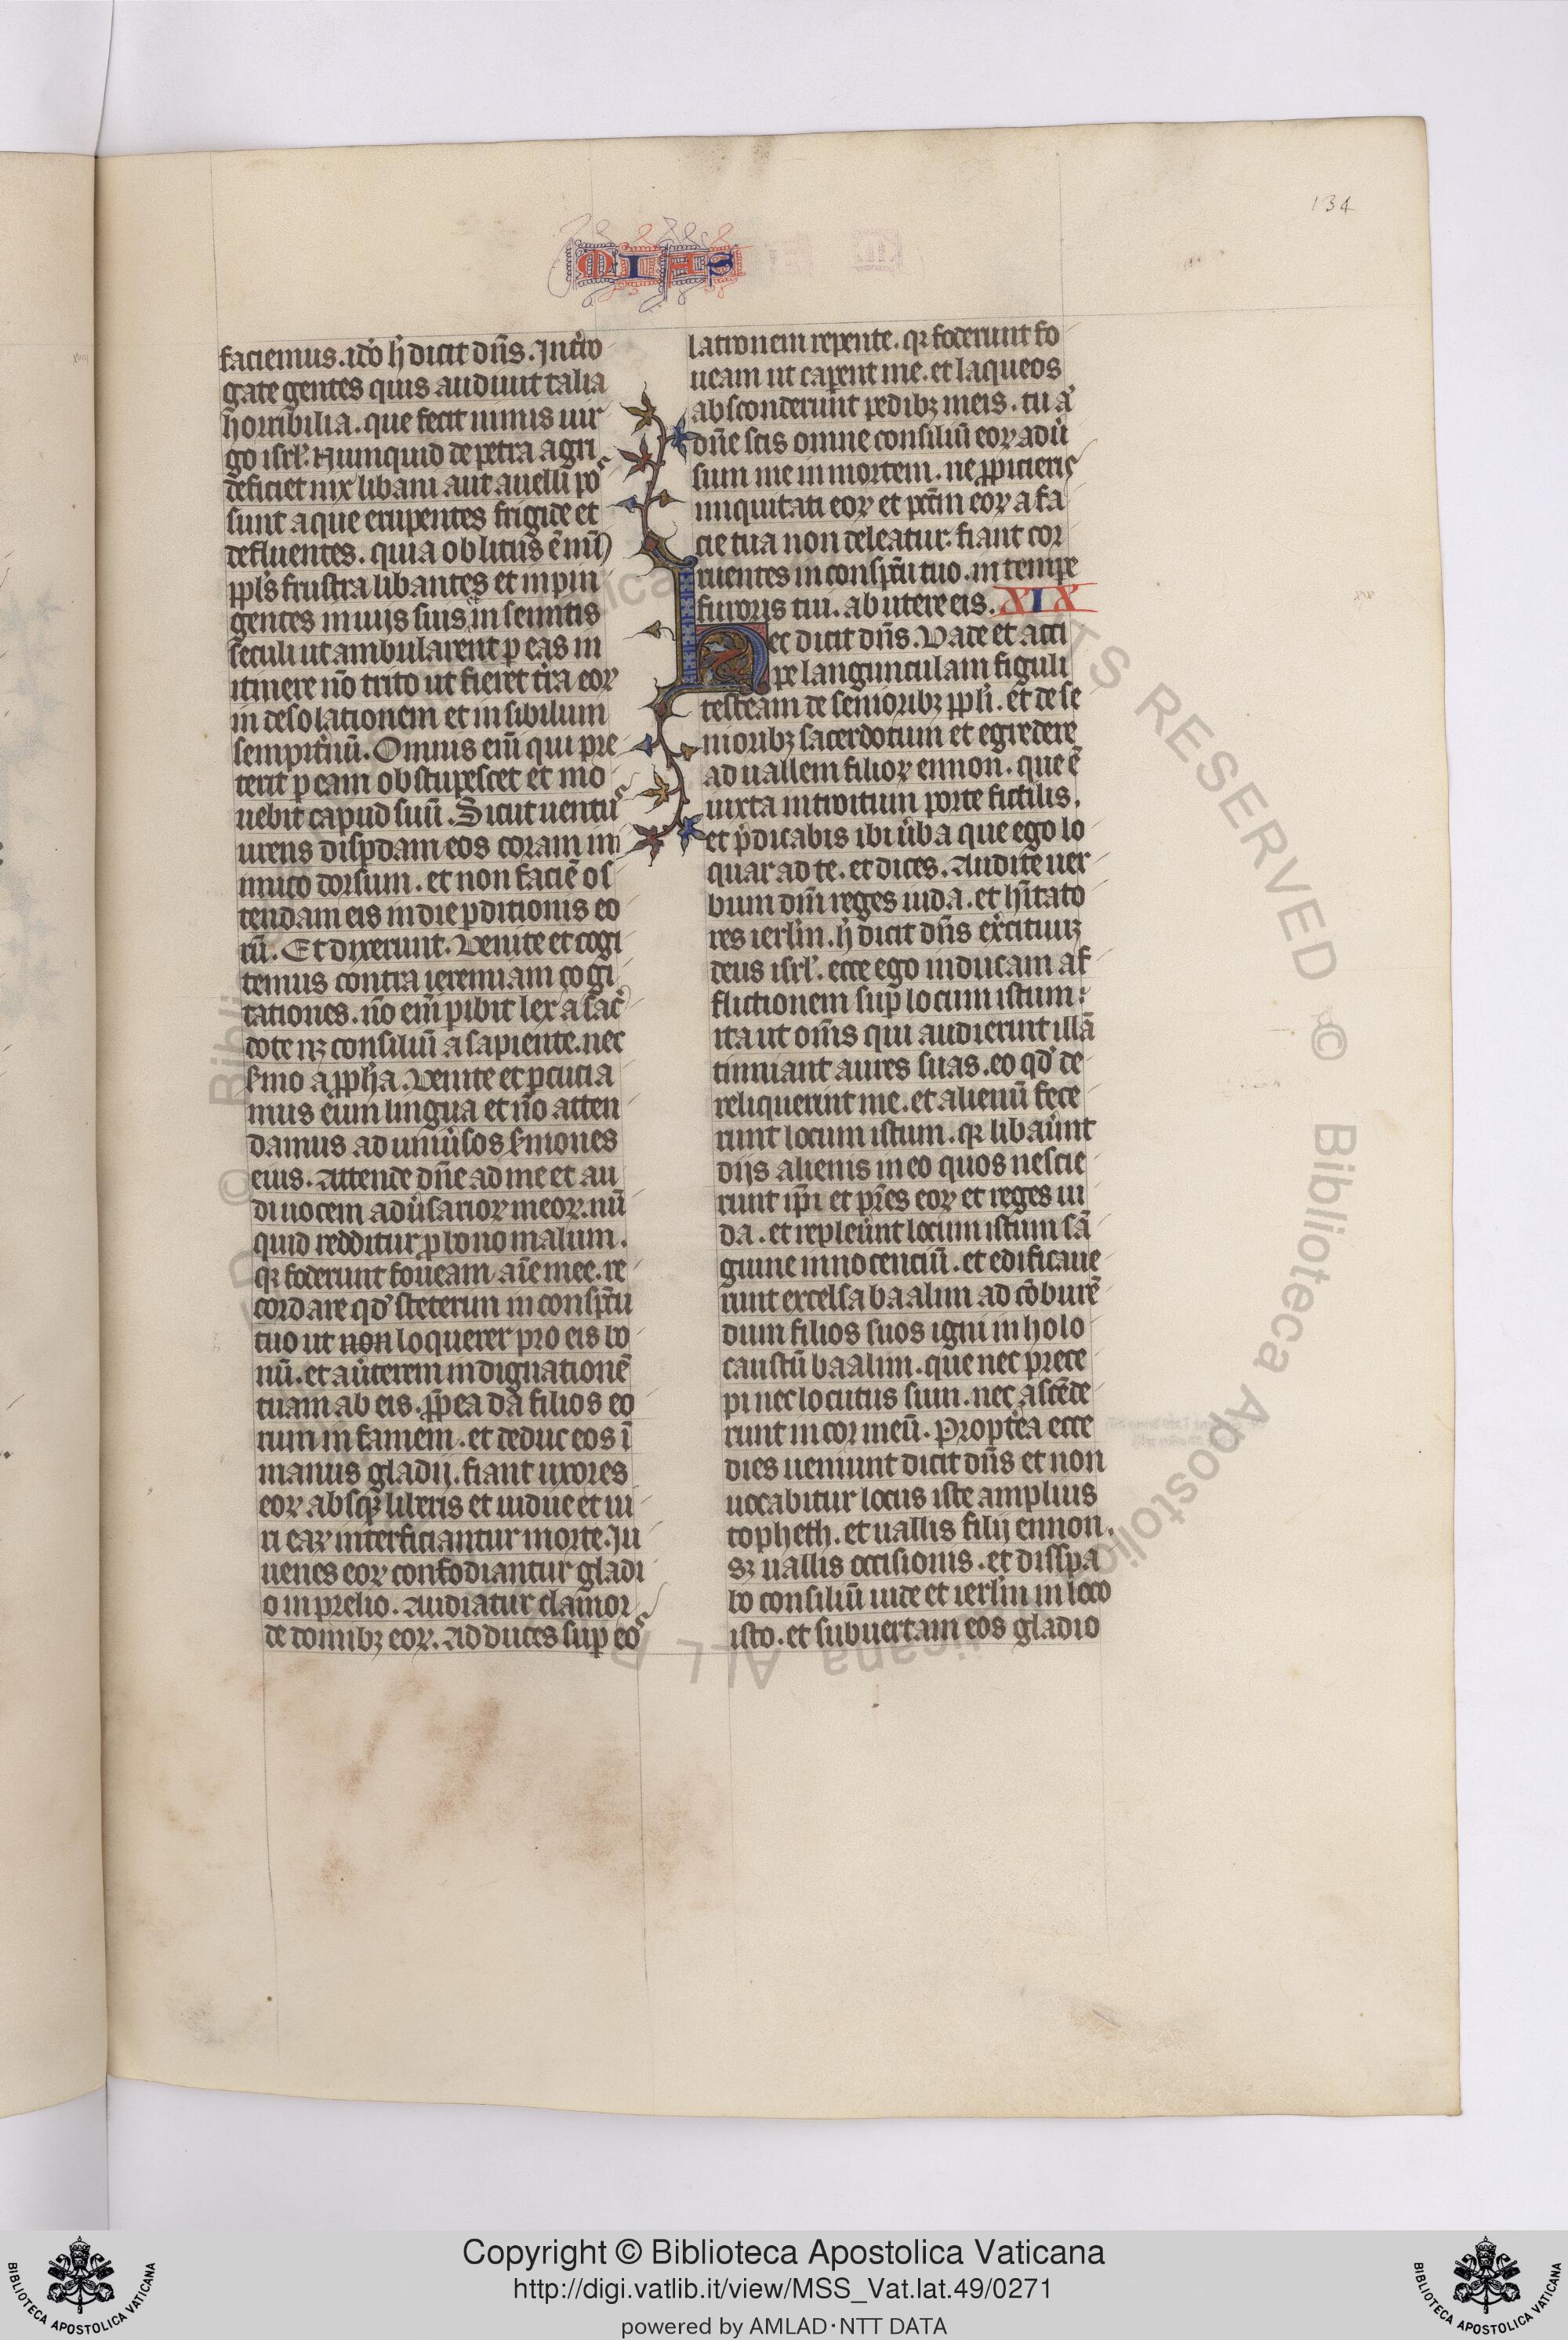 134
MIAS
faciemus. ido h̄ dicit dn̄s. Int̾ro
gate gentes quis audiuit talia
horribilia. que fecit nimis uir
go isrl̾. Numquid de petra agri
deficiet nix libani aut auelli pos
sunt aque erupentes frigide et
defluentes. quia oblitus ē mī
ppl̾s frustra libantes et inpin
gentes in uijs suis in semitis
seculi ut ambularent p eas in
itinere nō trito ut fieret t̾ra eoꝝ
in desolationem et in sibilum
sempit̾nū. Omnis eni̅ qui pre
terit p eam obstupescet et mo
uebit capud suū. Sicut uentus
urens disp̱dam eos coram ini
mico dorsum. et non faciē os
tendam eis in die p̱ditionis eo
rū. Et dixerunt. Venite et cogi
temus contra ieremiam cogi
tationes. nō eni̅ p̱ibit lex a sac̾
dote nꝫ consiliū a sapiente. nec
s̾mo a ppħa. Venite et p̱cucia
mus eum lingua et nō atten
damus ad uniu̾sos s̾mones
eius. Attende dn̄e ad me et au
di uocem adu̾sarioꝝ meoꝝ. nū
quid redditur p̱ bono malum.
qꝛ foderunt foueam aīe mee. re
cordare qd̾ steterim in conspc̄u
tuo ut non loquerer pro eis bo
nū. et au̾terem indignationē
tuam ab eis. pp̄ea da filios eo
rum in famem. et deduc eos ī
manus gladij. fiant uxores
eoꝝ absqꝫ liberis et uidue et ui
ri eaꝝ interficiantur morte. Iu
uenes eoꝝ confodiantur gladi
o in prelio. Audiatur clamor
de domibꝫ eoꝝ. Adduces sup̱ eos
lationem repente. qꝛ foderunt fo
ueam ut caperent me. et laqueos
absconderunt pedibꝫ meis. tu a̾
dn̄e scis omne consiliū eoꝝ adu̾
sum me in mortem. ne ppicieris
iniquitati eoꝝ et pc̄tm eoꝝ a fa
cie tua non deleatur. fiant cor
ruentes in conspc̄u tuo. in tempe
furoris tui. abutere eis. XIX
Hec dicit dn̄s. Vade et acci
pe langunculam figuli
testeam de senioribꝫ ppl̾i. et de se
nioribꝫ sacerdotum et egredere
ad uallem filioꝝ ennon. que ē
iuxta introitum porte fictilis.
et p̾dicabis ibi u̾ba que ego lo
quar ad te. et dices. Audite uer
bum dn̄i reges iuda. et hītato
res ierl̾m. h̄ dicit dn̄s ex̾cituū
deus isrl̾. ecce ego inducam af
flictionem sup̱ locum istum.
ita ut om̄s qui audierint illā
tinniant aures suas. eo qd̾ de
reliquerint me. et alienū fece
runt locum istum. qꝛ libau̾nt
dijs alienis in eo quos nescie
runt ip̄i et pr̄es eoꝝ et reges iu
da. et repleu̾nt locum istum sā
guine innocenciū. et edificaue
runt excelsa baalim ad cōburē
dum filios suos igni in holo
caustū baalim. que nec prece
pi nec locutus sum. nec ascēde
runt in cor meū. Propt̾ea ecce
dies ueniunt dicit dn̄s et non
uocabitur locus iste amplius
topheth. et uallis filij ennon.
sꝫ uallis occisionis. et dissipa
bo consiliū iude et ierl̾m in loco
isto. et subuertam eos gladio
Copyright © Biblioteca Apostolica Vaticana
http://digi.vatlib.it/view/MSS_Vat.lat.49/0271
powered by AMLAD·NTT DATA
BIBLIOTECA APOSTOLICA VATICANA
BIBLIOTECA APOSTOLICA VATICANA